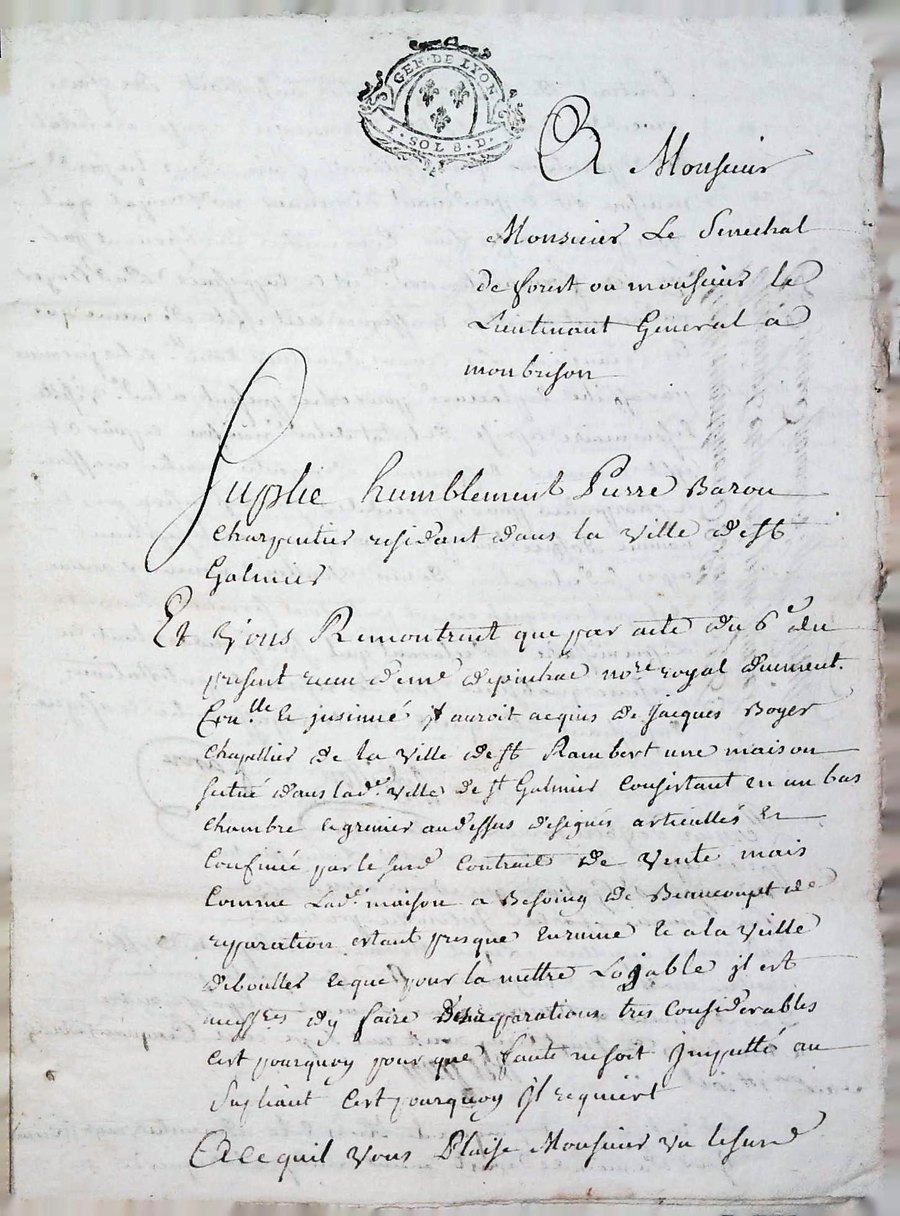 GEN. DE LYON
1. SOL 8. D.
A Monsieur
Monsieur Le Senechal
de forest ou monsieur le
Lieutenant General a
monbrison
Suplie humblement Pierre Baron
Charpentier residant dans la ville de st
Galmier
Et vous Remontrait que par acte du 6e du
present recu de me depinhac nore royal duement
Conlle et jnsinué jl auroit acquis de Jacques Boyer
Chapellier de la ville de st Rambert une maison
situé dans lade ville de st Galmier Consistant en un bas
chambre et grenier au dessus designés articullés Et
Confinée par le surd Contract de vente mais
Comme Lade maison a Besoing de Beaucoupt de
reparation estant presque en ruine et a la veille
deboulles et que pour la mettre Logable jl est
nessres dy faire des reparations tres Considerables
Cest pourquoy pour que faute ne soit jmputté au
Supliant Cest pourquoy jl requiert
A ce quil vous Plaise Monsieur vu le surd